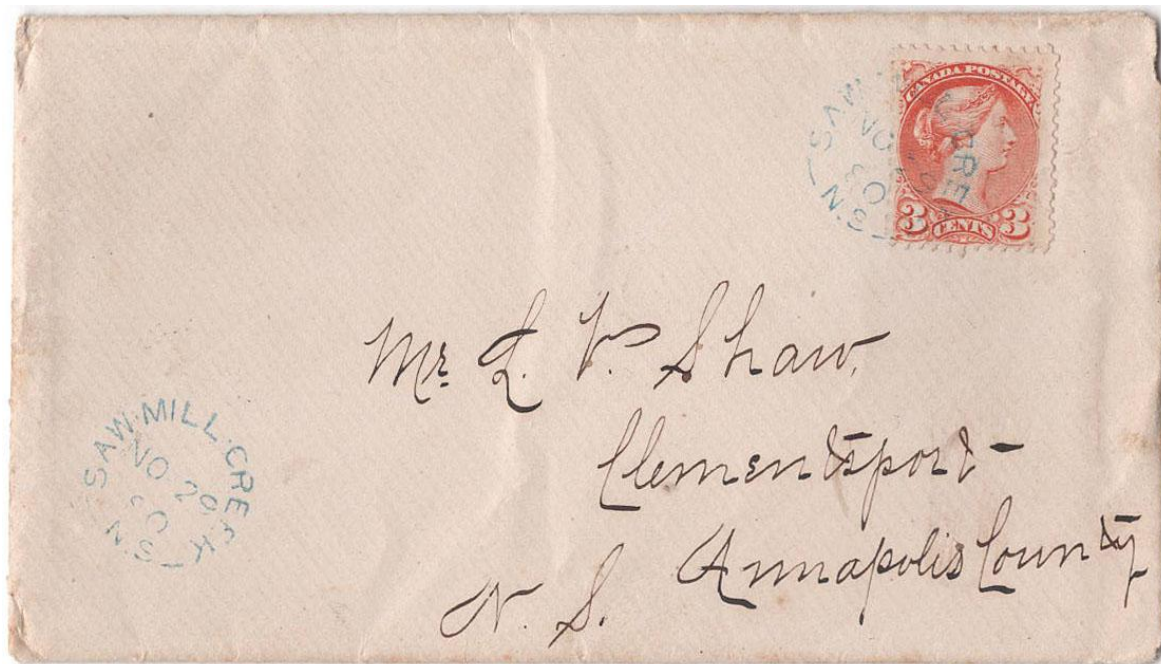 CANADA POSTAGE
3 CENTS 3
Mr. L. V. Shaw,
Clementsport
Annapolis County
N. S.
SAW·MILL·CREEK
NO 29
90
N.S